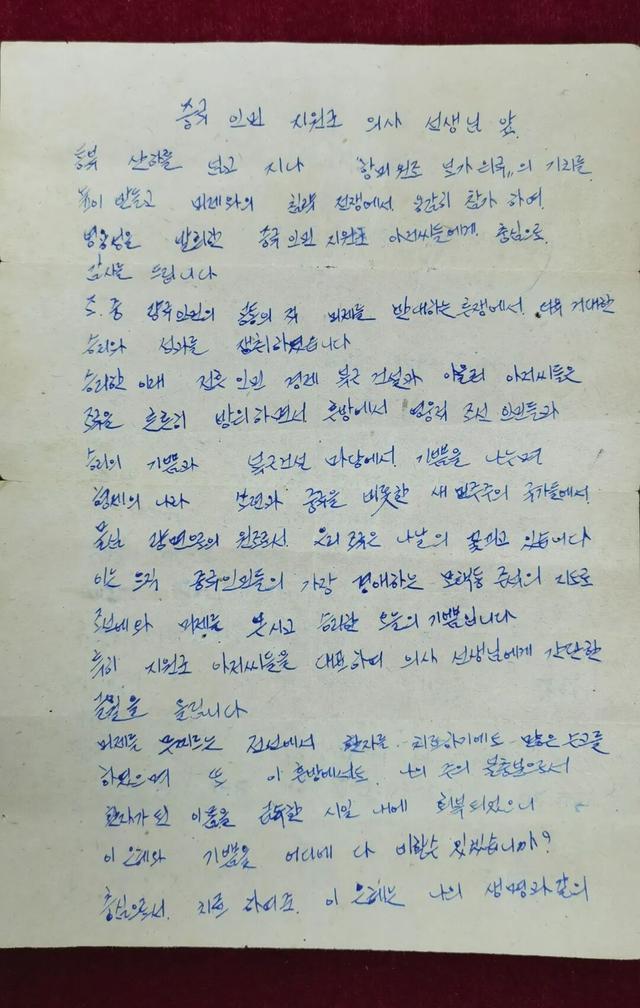 중국 인민 지원군 의사 선생님 앞.
산하를 넘고 지나 "항미 원조 보가 위국"의 기치를
높이 받들고 미제와의 침략 전쟁에서 용감히 참가 하여.
발휘한 중국 인민 지원군 아저씨들에게. 충심으로
감사를 드립니다
조. 중 양국 인민의 공동의 적 미제를 반대하는 투쟁에서. 거대한
승리와 성과를 쟁취하였습니다
승리한 이래 전후 인민 경제 복구 건설과 아울러 아저씨들은
조국을 튼튼히 방위하면서 후방에서 영웅적 조선 인민들과
승리의 기쁨과 복구건설 마당에서. 기쁨을 나누며
형제의 나라 쏘련과 중국을 비롯한 새 민주주의 국가들에서.
원조로서. 우리 조국은 나날이 꽃피고 있습니다
이는 오직 중국인민들의 가장 경애하는 모택동 주석의 지도로
조선에 와 미제를 승리한 오늘의 기쁨입니다
특히 지원군 아저씨들을 대표하여 의사 선생님에게 간단한
올립니다
미제를 무찌르는 전선에서 환자를 치료하기에도 많은 수고를
하였으며 또 이 후방에서도
환자가 된 이몸을 시일 내에 회복되었으니
이 은혜와 기쁨을 어디에 다 비할수 있겠습니까?
충심으로서. 이 은혜는 나의 생명과 같이